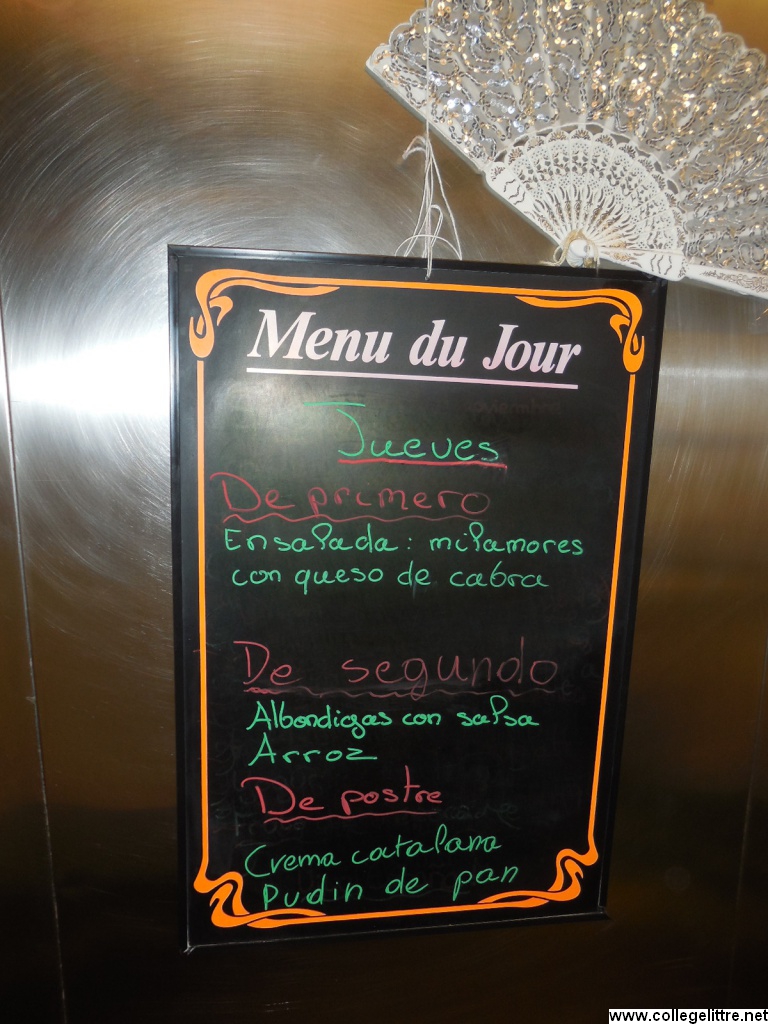 Menu du Jour
Jueves
De primero
Ensalada: milamores
con queso de cabra
De segundo
Albondigas con salsa
Arroz
De postre
Crema catalana
Pudin de pan
www.collegelittre.net